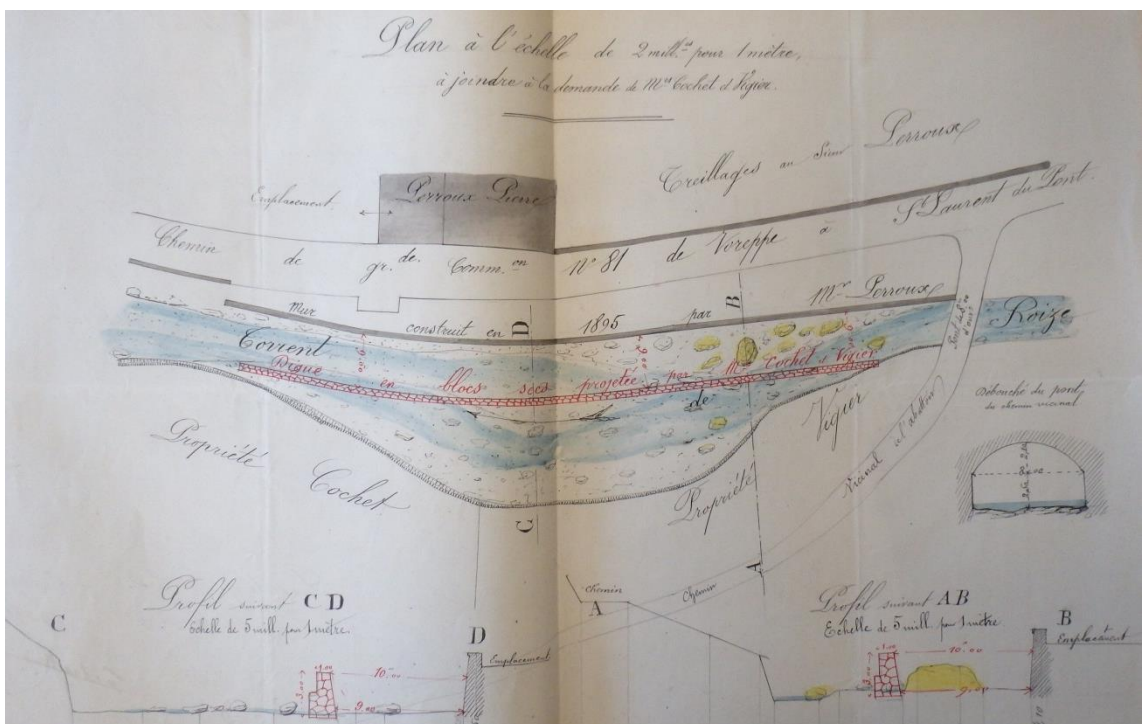 Plan à l'échelle de 2 mill.es pour 1 mètre,
à joindre à la demande de Mrs Cochet et Vigier.
Treillages au Sieur Perroux
Emplacement
Perroux Pierre
Chemin de gr. de. Comm.on N° 81 de Voreppe à St Laurent du Pont.
Mur construit en 1895 par Mr Perroux
B
D
Torrent de Roize
Digue en blocs secs projetée par Mrs Cochet et Vigier
9.00
9.00
Propriété Cochet
Propriété Vigier
Vicinal à l'abattoir
Débouché du pont
du chemin vicinal
8.00
C
A
Chemin
Profil suivant C D
Echelle de 5 mill. pour 1 mètre.
C
D
Emplacement
1.00
10.00
3.00
9.00
Chemin
A
Profil suivant A B
Echelle de 5 mill. pour 1 mètre
B
Emplacement
1.00
10.00
3.00
9.00